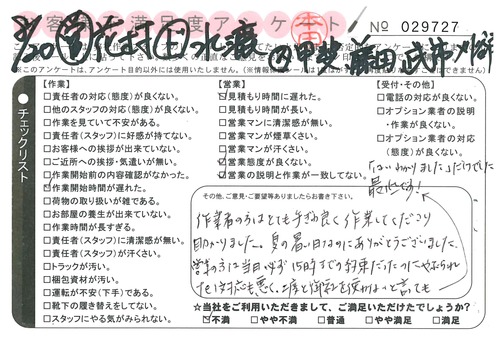 お客様満足度アンケート
№ 029727
※このアンケートは、アンケート目的以外には使用いたしません。
チェックリスト
【作業】
□責任者の対応(態度)が良くない。
□他のスタッフの対応(態度)が良くない。
□作業を見ていて不安がある。
□責任者(スタッフ)に好感が持てない。
□お客様への挨拶が出来ていない。
□ご近所への挨拶・気遣いが無い。
□作業開始前の内容確認がなかった。
□作業開始時間が遅れた。
□荷物の取り扱いが雑である。
□お部屋の養生が出来ていない。
□作業時間が長すぎる。
□責任者(スタッフ)に清潔感が無い。
□責任者(スタッフ)が汗くさい。
□トラックが汚い。
□梱包資材が汚い。
□運転が不安(下手)である。
□靴下の履き替えをしてない。
□スタッフにやる気がみられない。
【営業】
□見積もり時間に遅れた。
□見積もり時間が長い。
□営業マンに清潔感が無い。
□営業マンが煙草くさい。
□営業マンが汗くさい。
□営業態度が良くない。
□営業の説明と作業が一致してない。
【受付・その他】
□電話の対応が良くない。
□オプション業者の説明
・作業が良くない。
□オプション業者の対応
(態度)が良くない。
「はいわかりました」だけでした
最低です!
その他、ご意見・ご要望等ありましたらお書き下さい。
作業者の方はとても手ぎわ良く作業してくださり
助かりました。夏の暑い日なのにありがとうございました。
営業の方に当日必ず15時までの約束だったのにやぶられ
た。対応も悪く、二度と御社を使わないと言っても
☆当社をご利用いただきまして、ご満足いただけでしょうか?
□不満 □やや不満 □普通 □やや満足 □満足